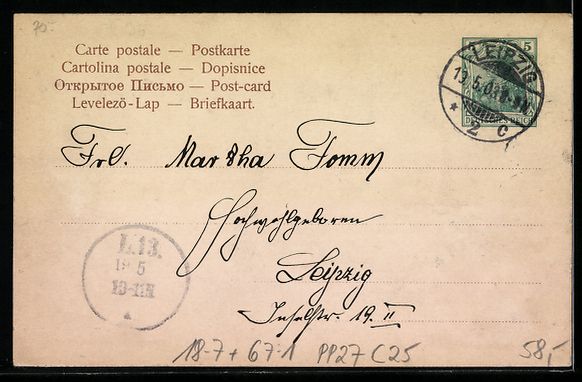 70.-
Carte postale — Postkarte
Cartolina postale — Dopisnice
Открытое Письмо — Post-card
Levelező-Lap — Briefkaart.
5
LEIPZIG
2 c
DEUTSCHES REICH
Frl. Martha Tomm
Hochwohlgeboren
Leipzig
Inselstr. 19. II
L.13.
19 5
10-11N
18-7 + 67-1 PP27 C25
58,-